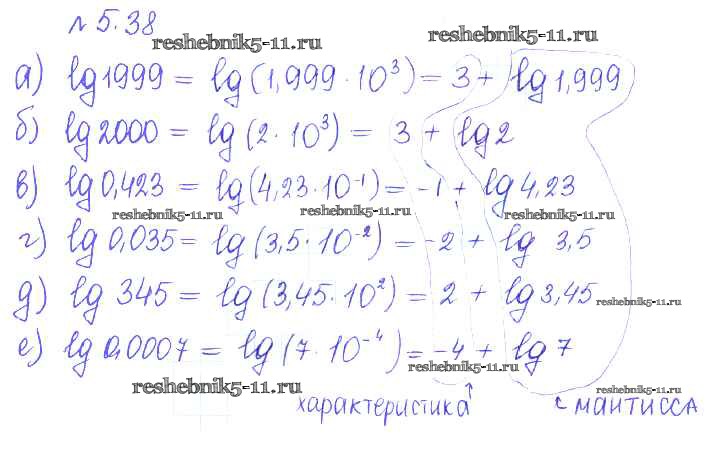 № 5.38
reshebnik5-11.ru reshebnik5-11.ru
а) lg 1999 = lg (1,999 · 10³) = 3 + lg 1,999
б) lg 2000 = lg (2 · 10³) = 3 + lg 2
в) lg 0,423 = lg (4,23 · 10⁻¹) = -1 + lg 4,23
reshebnik5-11.ru reshebnik5-11.ru reshebnik5-11.ru
г) lg 0,035 = lg (3,5 · 10⁻²) = -2 + lg 3,5
д) lg 345 = lg (3,45 · 10²) = 2 + lg 3,45
reshebnik5-11.ru
е) lg 0,0007 = lg (7 · 10⁻⁴) = -4 + lg 7
reshebnik5-11.ru
reshebnik5-11.ru reshebnik5-11.ru
характеристика ↑ ← мантисса